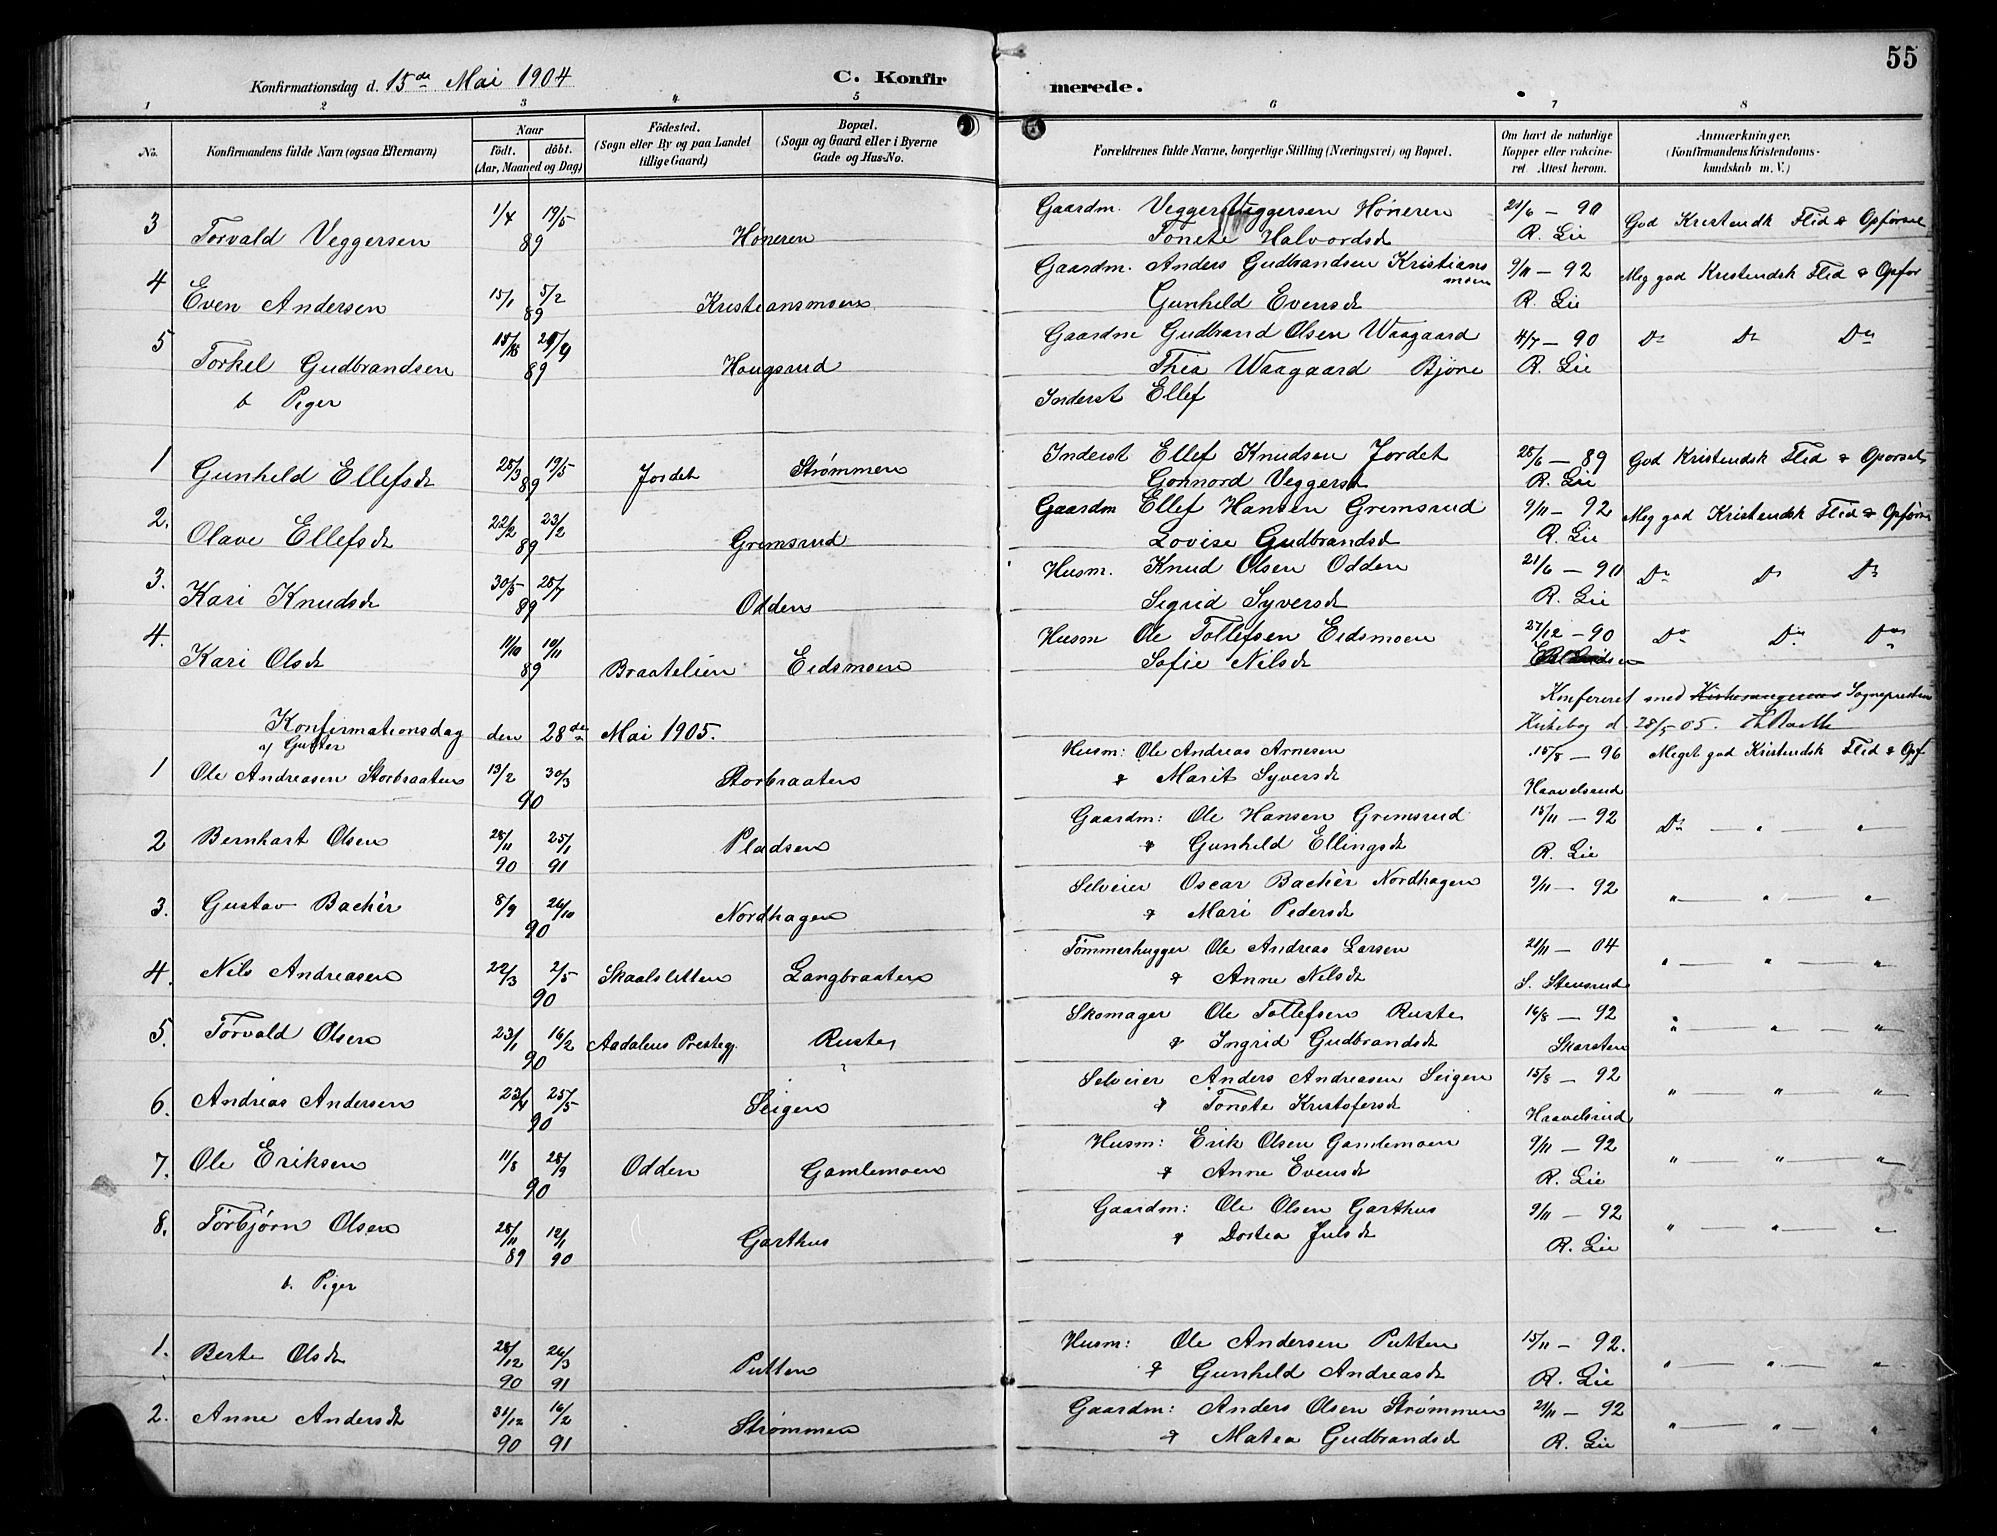 55
Konfirmationsdag d. 15de Mai 1904
C. Konfirmerede.
1 2 3 4 5 6 7 8
No.
Konfirmandens fulde Navn (ogsaa Efternavn)
Naar
født. døbt.
(Aar, Maaned og Dag)
Fødested.
(Sogn eller By og paa Landet
tillige Gaard)
Bopæl.
(Sogn og Gaard eller i Byerne
Gade og Hus-No.
Forældrenes fulde Navne, borgerlige Stilling (Næringsvei) og Bopæl.
Om havt de naturlige
Kopper eller vakcine-
ret. Attest herom.
Anmærkninger.
(Konfirmandens Kristendoms-
kundskab m. V.)
3 Torvald Veggersen 1/4 19/5 89 Høneren Gaardm. Vegger Veggersen Høneren 21/6 – 90 God Kristendk Flid & Opførsel
Tonete Halvordsd R. Lie
4 Even Andersen 15/1 5/2 89 Kristiansmoen Gaardm. Anders Gudbrandsen Kristians 9/11 – 92 Meg god Kristendsk Flid & Opfør
moen
Gunhild Evensd R. Lie
5 Torkel Gudbrandsen 89 Hougsrud Gaardm Gudbrand Olsen Waagaard 4/7 – 90 Do Do Do
Thea Waagaard Bjøre R. Lie
b Piger Inderst Ellef
1 Gunhild Ellefsd 25/3 19/5 89 Jordet Strømmen Inderst Ellef Knudsen Jordet 28/6 – 89 God Kristendsk Flid & Oporsel
Gonnord Veggersd R. Lie
2. Olave Ellefsd 22/2 23/2 89 Gremsrud Gaardm Ellef Hansen Gremsrud 9/11 – 92 Meg god Kristendsk Flid & Opførs
Lovise Gudbrandsd R. Lie
3. Kari Knudsd 30/5 28/7 89 Odden Husm. Knud Olsen Odden 21/6 – 90 Do Do Do
Sigrid Syversd R. Lie
4. Kari Olsd 11/10 10/11 89 Braatelien Eidsmoen Husm Ole Tollefsen Eidsmoen 27/12 – 90 Do Do Do
Sofie Nilsd
Konfereret med Sogneprestens
Kirkebog d. 28/5 – 05.
Konfirmationsdag den 28de Mai 1905.
a/ Gutter
1 Ole Andreasen Storbraaten 13/2 30/3 90 Storbraaten Husm: Ole Andreas Arnesen 15/8 – 96 Meget god Kristendsk Flid & Opf
& Marit Syversd Haavelsrud
2 Bernhart Olsen 28/11 90 25/1 91 Pladsen Gaardm: Ole Hansen Gremsrud 15/11 – 92 Do — " — "
& Gunhild Ellingsd R. Lie
3. Gustav Bachér 8/9 26/10 90 Nordhagen Selveier Oscar Bachér Nordhagen 9/11 – 92 " — " — "
& Mari Pedersd
4. Nils Andreasen 22/3 2/5 90 Skaalsletten Langbraaten Tømmerhugger Ole Andreas Larsen 21/11 – 04 " — " — "
& Anne Nilsd S. Stensrud
5. Torvald Olsen 23/1 16/2 90 Aadalens Prestegj. Ruste Skomager Ole Tollefsen Ruste 16/8 – 92 " — " — "
& Ingrid Gudbrandsd Skarsten
6. Andreas Andersen 23/4 25/5 90 Seigen Selveier Anders Andreasen Seigen 15/8 – 92 " — " — "
& Tonete Kristofersd Haavelsrud
7. Ole Eriksen 11/8 28/9 90 Odden Gamlemoen Husm: Erik Olsen Gamlemoen 9/11 – 92 " — " — "
& Anne Evensd R. Lie
8. Torbjørn Olsen 28/11 89 12/1 90 Garthus Gaardm: Ole Olsen Garthus 9/11 – 92 " — " — "
& Dortea Julsd R. Lie
b. Piger
1. Berte Olsd 28/12 90 26/3 91 Putten Husm: Ole Andersen Putten 15/11 – 92. " — " — "
& Gunhild Andreasd R. Lie
2. Anne Andersd 31/12 90 16/2 91 Strømmen Gaardm: Anders Olsen Strømmen 21/11 – 92 " — " — "
& Matea Gudbrandsd R. Lie